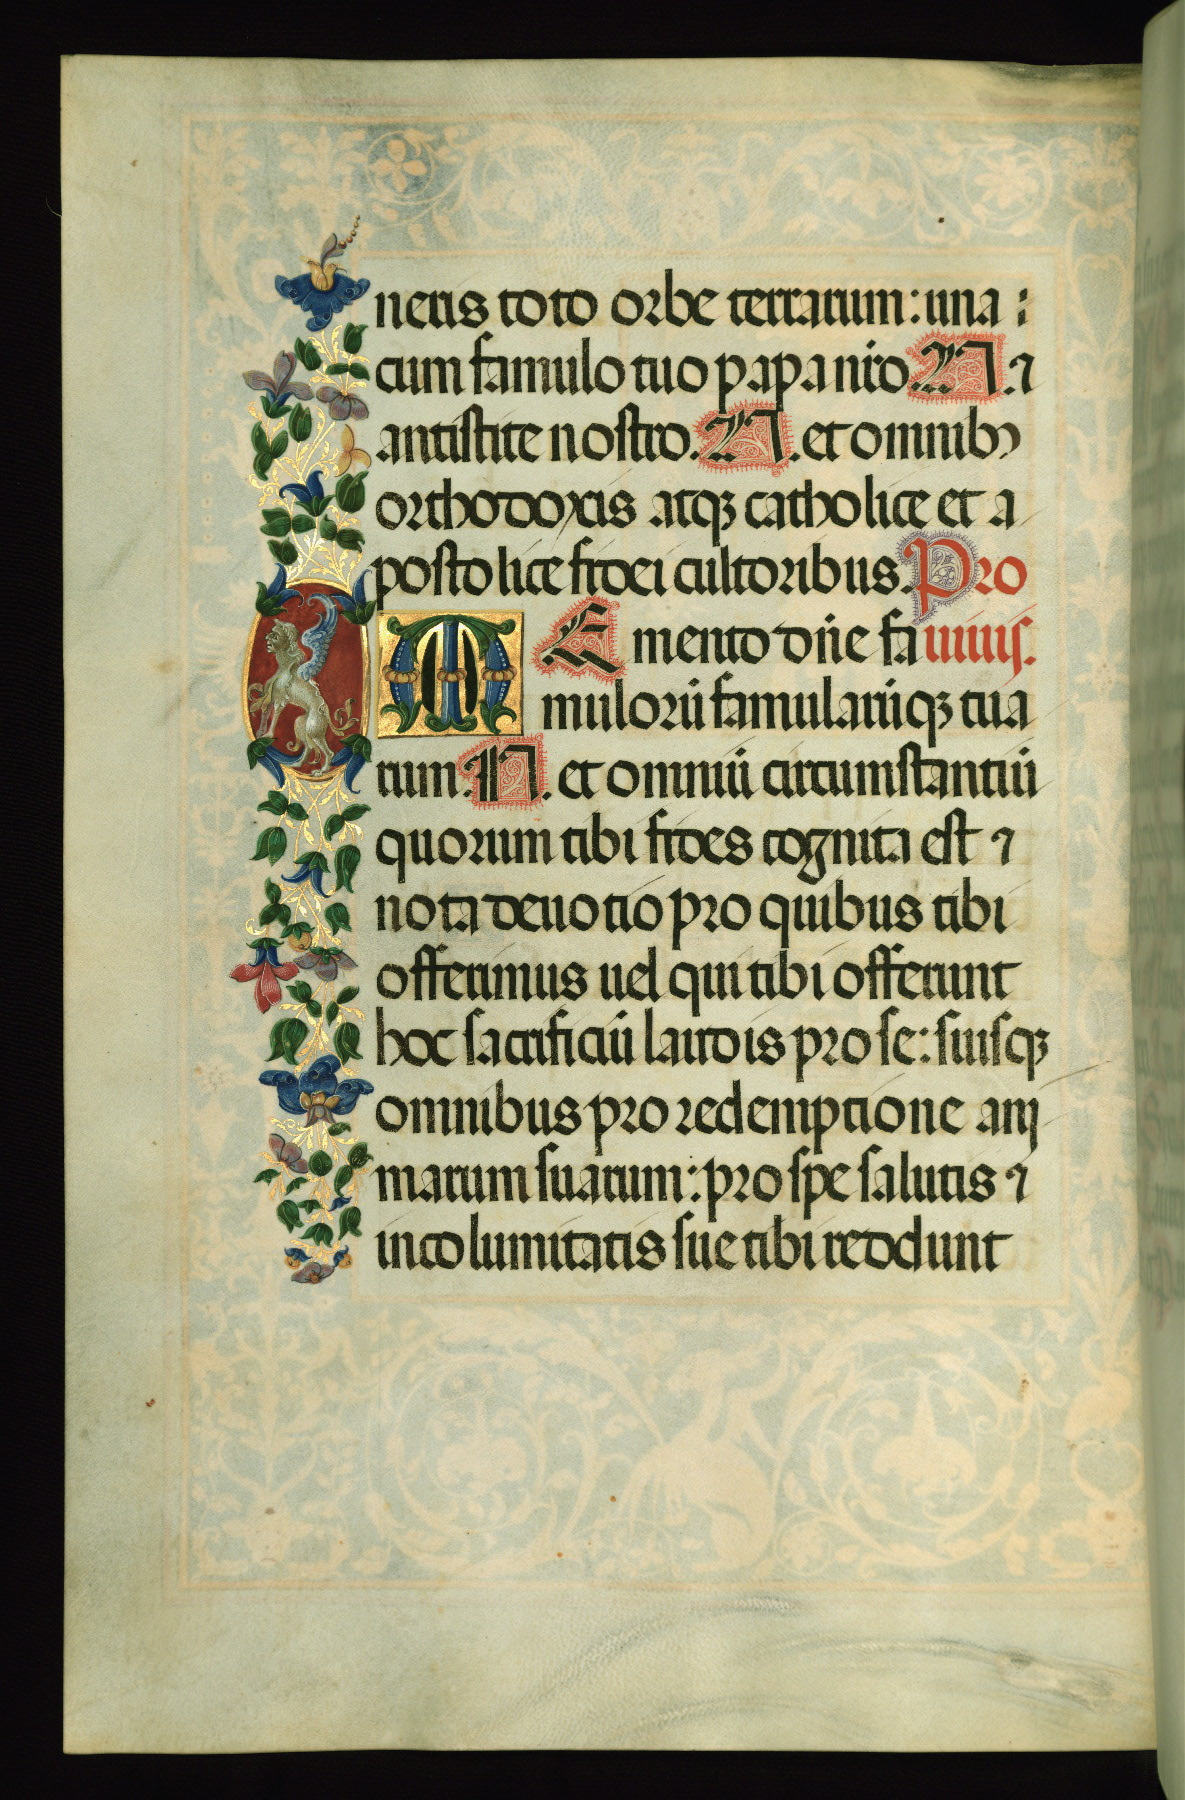 neris toto orbe terrarum: una
cum famulo tuo papa nr̄o .N. ⁊
antistite nostro .N. et omnibꝰ
orthodoxis atqꝫ catholice et a
postolice fidei cultoribus. Pro
Memento dn̄e fa uiuis.
mulorū famularūqꝫ tua
rum .N. et omniū circumstantiū
quorum tibi fides cognita est ⁊
nota deuotio pro quibus tibi
offerimus uel qui tibi offerunt
hoc sacrificiū laudis pro se: suisqꝫ
omnibus pro redemptione ani
marum suarum: pro spe salutis ⁊
incolumitatis sue tibi reddunt